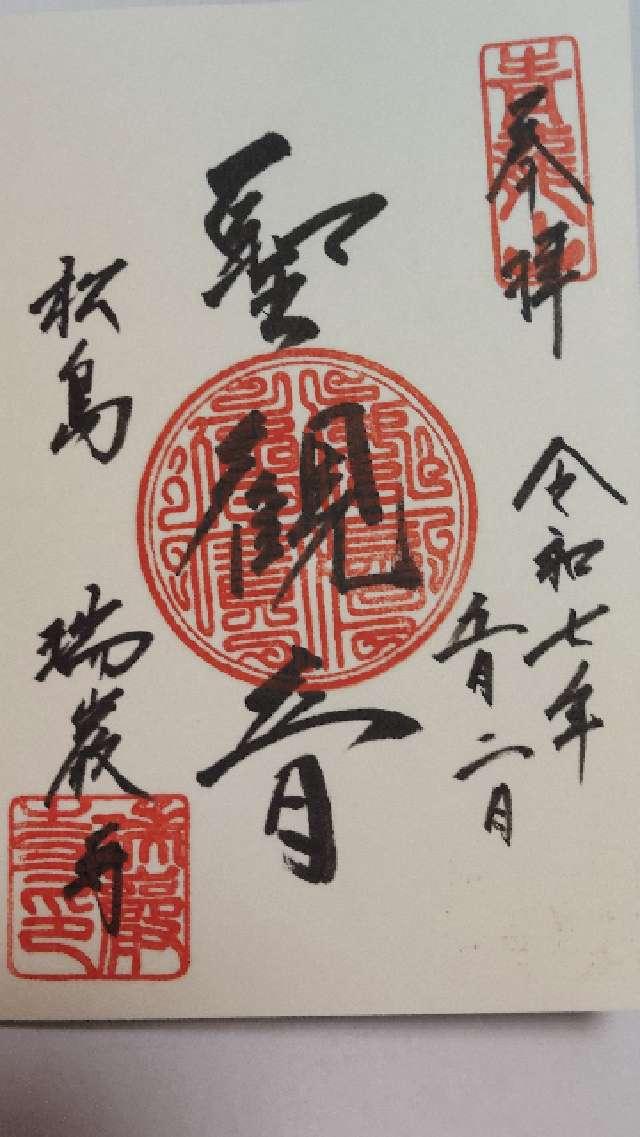 奉拝
令和七年
五月二日
聖觀音
松島 瑞巌寺
青龍山
瑞巌寺印